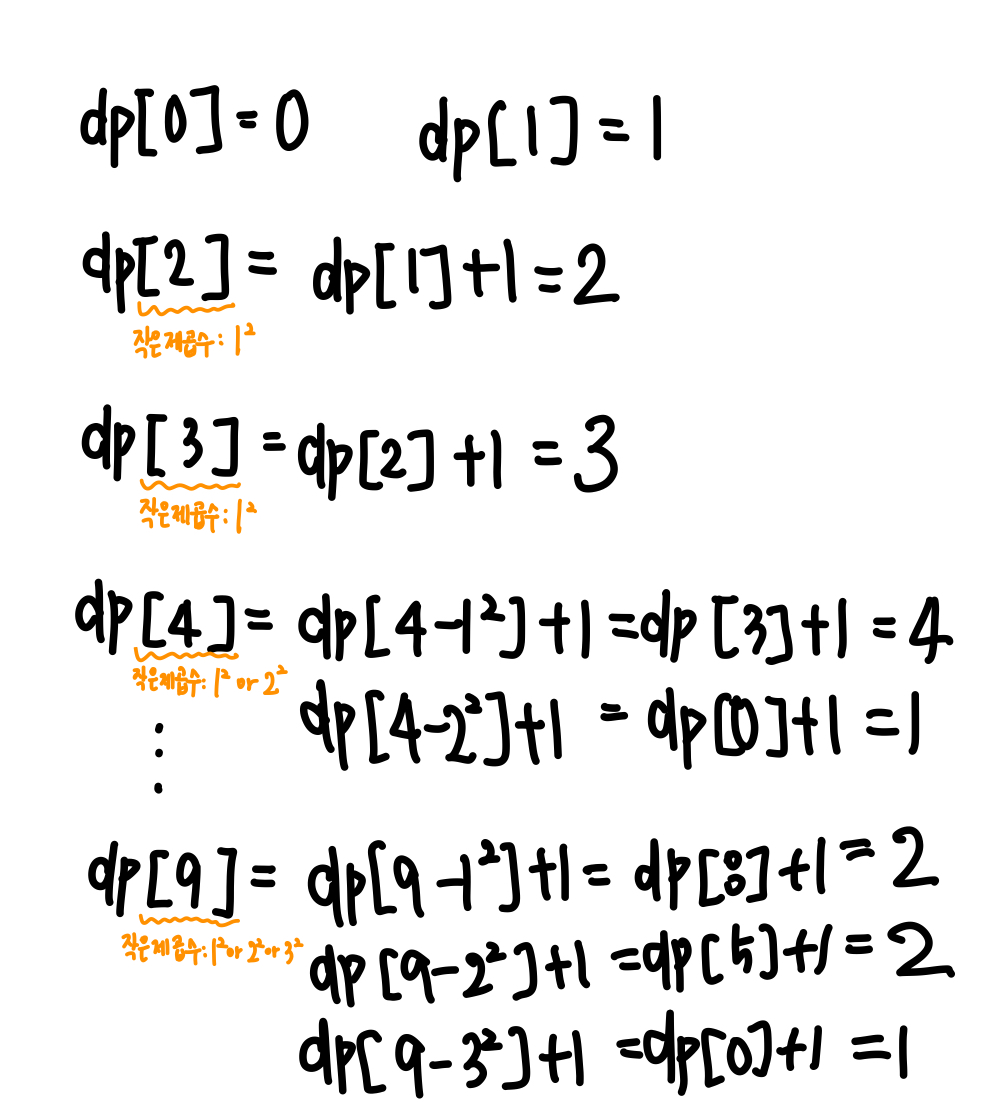 dp[0] = 0 dp[1] = 1
dp[2] = dp[1]+1 = 2
작은제곱수: 1²
dp[3] = dp[2]+1 = 3
작은제곱수: 1²
dp[4] = dp[4-1²]+1 = dp[3]+1 = 4
작은제곱수: 1² or 2²
dp[4-2²]+1 = dp[0]+1 = 1
⋮
dp[9] = dp[9-1²]+1 = dp[8]+1 = 2
작은제곱수: 1² or 2² or 3²
dp[9-2²]+1 = dp[5]+1 = 2
dp[9-3²]+1 = dp[0]+1 = 1